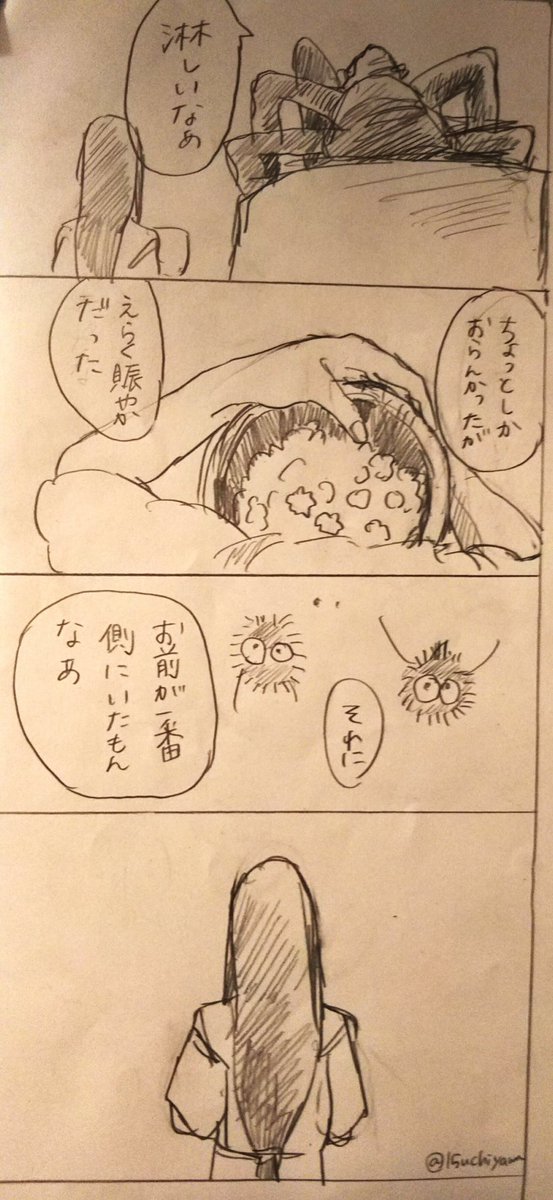 淋しいなぁ
ちょっとしか
おらんかったが
えらく賑やか
だった
それに
お前が一番
側にいたもん
なあ